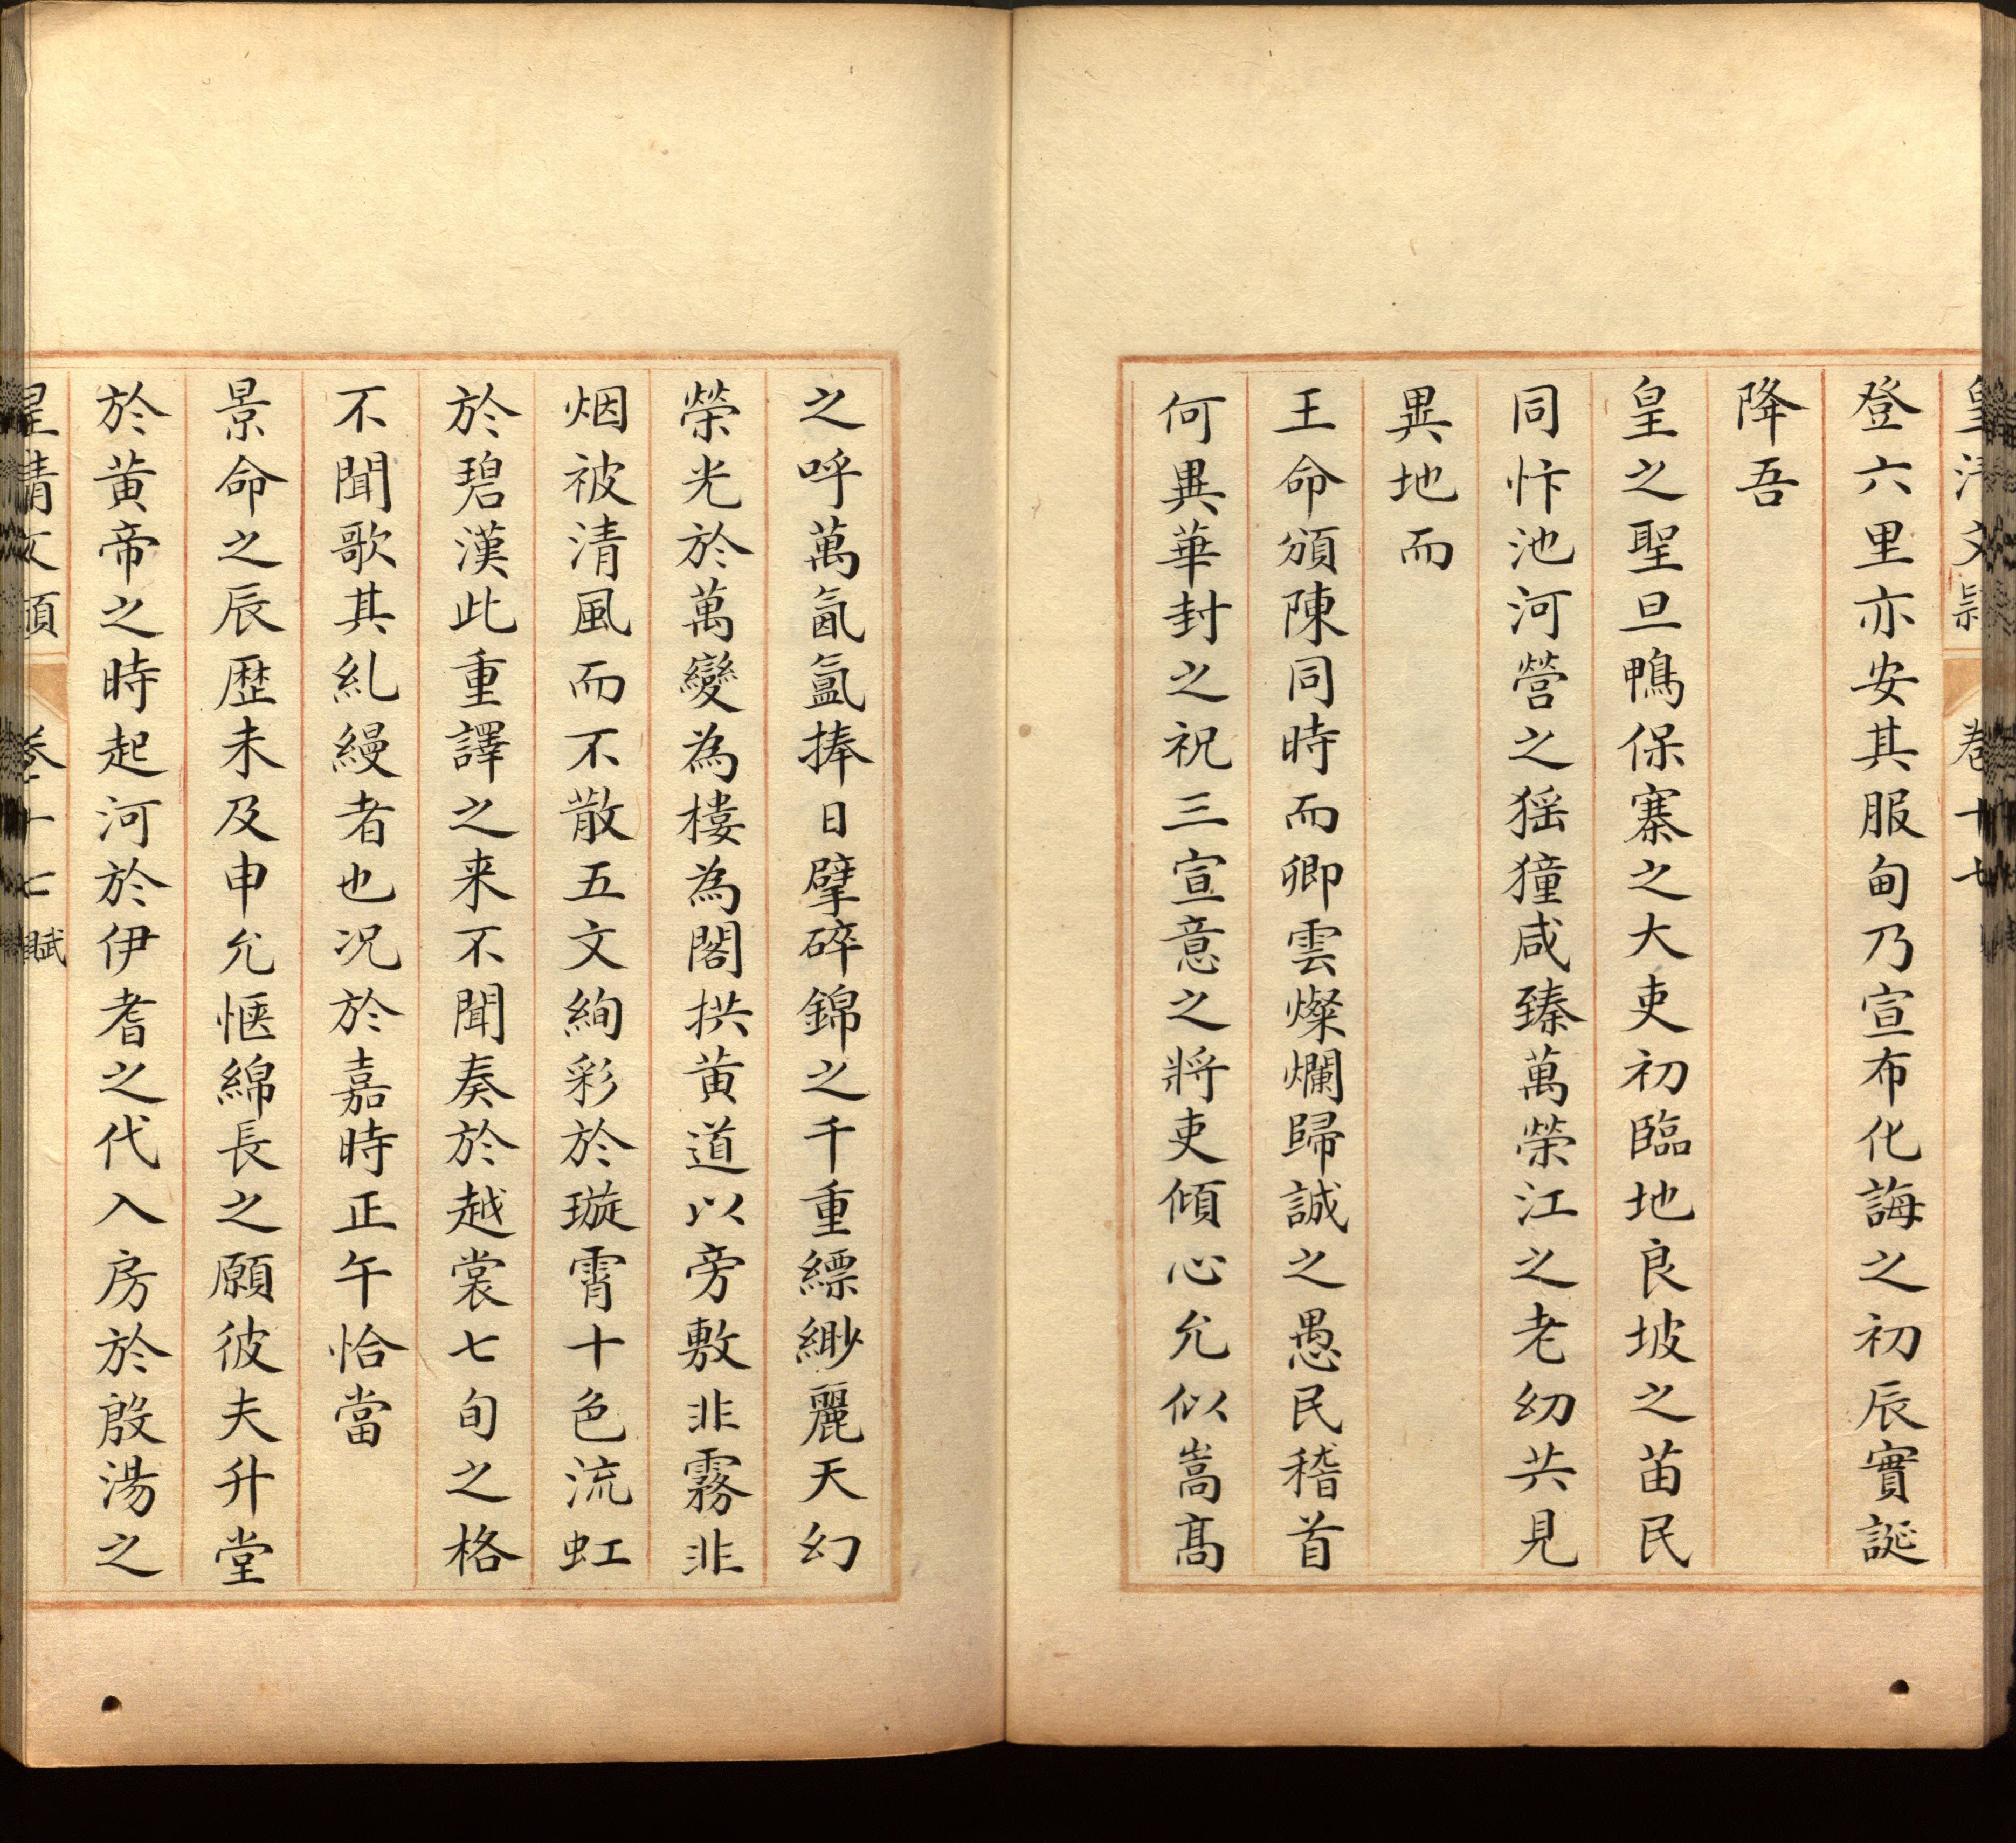 皇清文潁 卷十七
登六里亦安其服甸乃宣布化誨之初辰實誕
降吾
皇之聖旦鴨保寨之大吏初臨地良坡之苗民
同忭池河營之猺獞咸臻萬榮江之老幼共見
異地而
王命頒陳同時而卿雲燦爛歸誠之愚民稽首
何異華封之祝三宣意之將吏傾心允似嵩髙
之呼萬氤氳捧日擘碎錦之千重縹緲麗天幻
榮光於萬變為樓為閣拱黄道以旁敷非霧非
烟被清風而不散五文絢彩於璇霄十色流虹
於碧漢此重譯之来不聞奏於越裳七旬之格
不聞歌其糺縵者也况於嘉時正午恰當
景命之辰歴未及申允愜綿長之願彼夫升堂
於黄帝之時起河於伊耆之代入房於殷湯之
皇清文潁 卷十七 賦